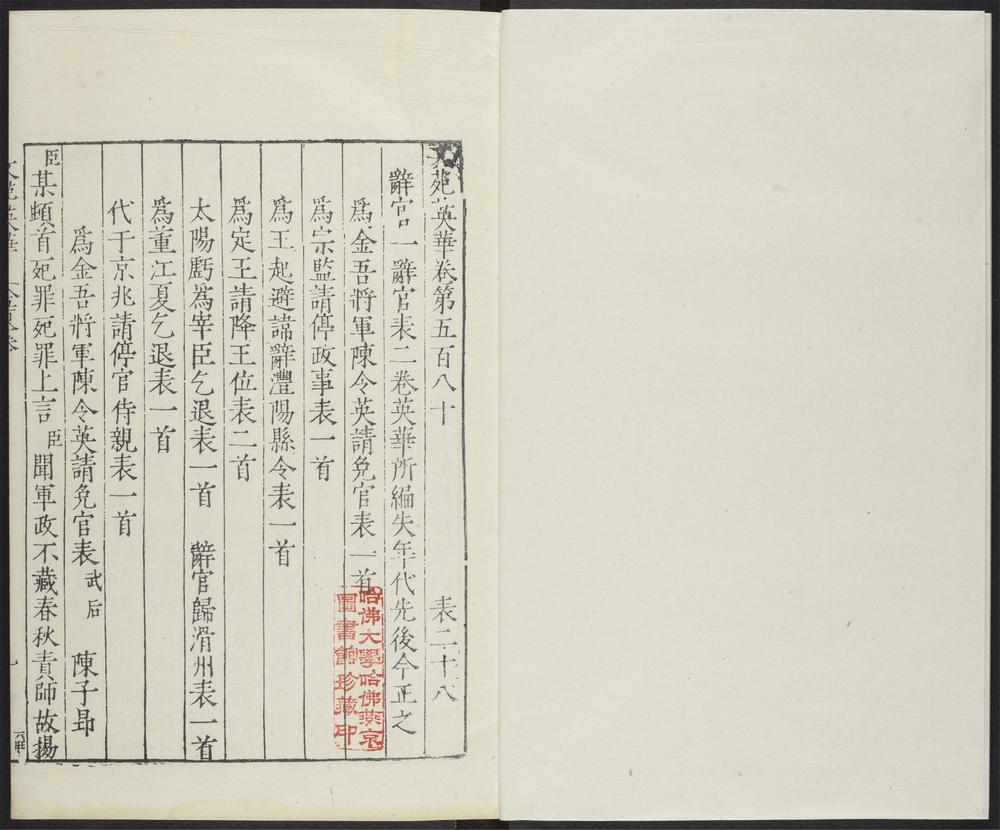 文苑英華卷第五百八十 表二十八
辭官一辭官表二卷英華所編失年代先後今正之
爲金吾將軍陳令英請免官表一首
爲宗監請停政事表一首
爲王起避諱辭澧陽縣令表一首
爲定王請降王位表二首
太陽虧爲宰臣乞退表一首 辭官歸滑州表一首
爲董江夏乞退表一首
代于京兆請停官侍親表一首
爲金吾將軍陳令英請免官表 武后 陳子昻
臣某頓首死罪死罪上言臣聞軍政不藏春秋責師故揚
哈佛大學哈佛燕京
圖書館珍藏印